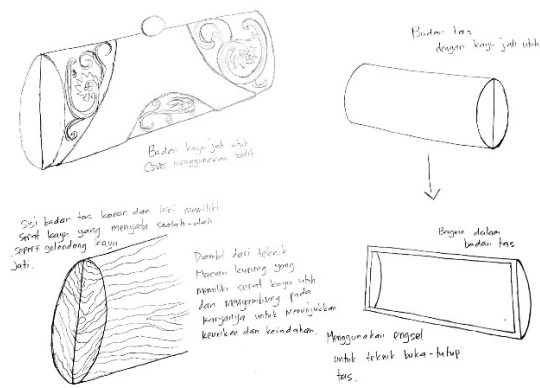 Badan kayu jati utuh
Cover menggunakan kulit
Badan tas
dengan kayu jati utuh
Sisi badan tas kanan dan kiri memiliki
serat kayu yang menyatu seolah-olah
seperti gelondong kayu
Jati.
Diambil dari teknik
Macam kurung yang
memiliki serat kayu utuh
dan menyambung pada
karyanya untuk menunjukkan
keunikan dan keindahan.
Bagian dalam
badan tas
Menggunakan engsel
untuk teknik buka-tutup
tas.